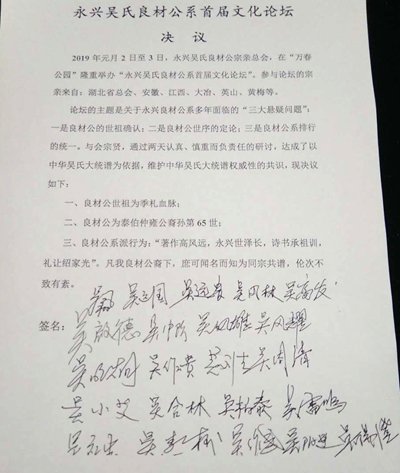 永兴吴氏良材公系首届文化论坛
决 议
2019 年元月 2 日至 3 日，永兴吴氏良材公宗亲总会，在“万春
公园”隆重举办“永兴吴氏良材公系首届文化论坛”。参与论坛的宗
亲来自：湖北省总会、安徽、江西、大冶、英山、黄梅等。
论坛的主题是关于永兴良材公系多年面临的“三大悬疑问题”：
一是良材公的世祖确认；二是良材公世序的定论；三是良材公系排行
的统一。与会宗贤，通过两天认真、慎重而负责任的研讨，达成了以
中华吴氏大统谱为依据，维护中华吴氏大统谱权威性的共识，现决议
如下：
一、良材公世祖为季札血脉；
二、良材公为泰伯仲雍公裔孙第 65 世；
三、良材公系派行为：“著作高风远，永兴世泽长，诗书承祖训，
礼让绍家光”。凡我良材公裔下，庶可闻名而知为同宗共谱，伦次不
致有紊。
签名：
吴小艾 吴合林